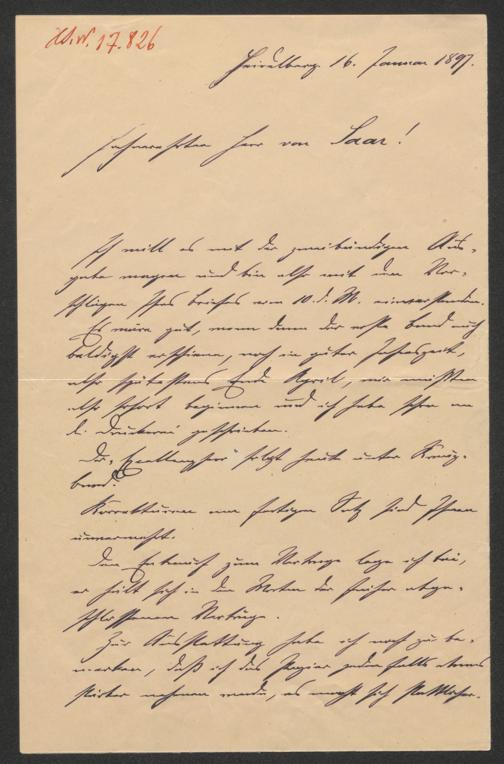 H.I.N. 17.826
Heidelberg. 16. Januar 1897.
Sehr verehrter Herr von Saar!
Ich will es mit der zweibändigen Aus-
gabe wagen und bin also mit den Vor-
schlägen Ihres Briefes vom 10. d. M. einverstanden.
Es wäre gut, wenn dann der erste Band noch
baldigst erschiene, noch in guter Jahreszeit,
also spätestens Ende April, wir müßten
also sofort beginnen und ich habe schon an
d. Druckerei geschrieben.
Der „Exzellenzherr" folgt heute unter Kreuz-
band.
Korrekturen am fertigen Satz sind Ihnen
unverwehrt.
Den Entwurf zum Vertrage lege ich bei,
er hält sich in den Worten der früher abge-
schlossenen Verträge.
Zur Ausstattung habe ich noch zu be-
merken, daß ich das Papier jedenfalls etwas
stärker nehmen werde, es macht sich stattlicher.